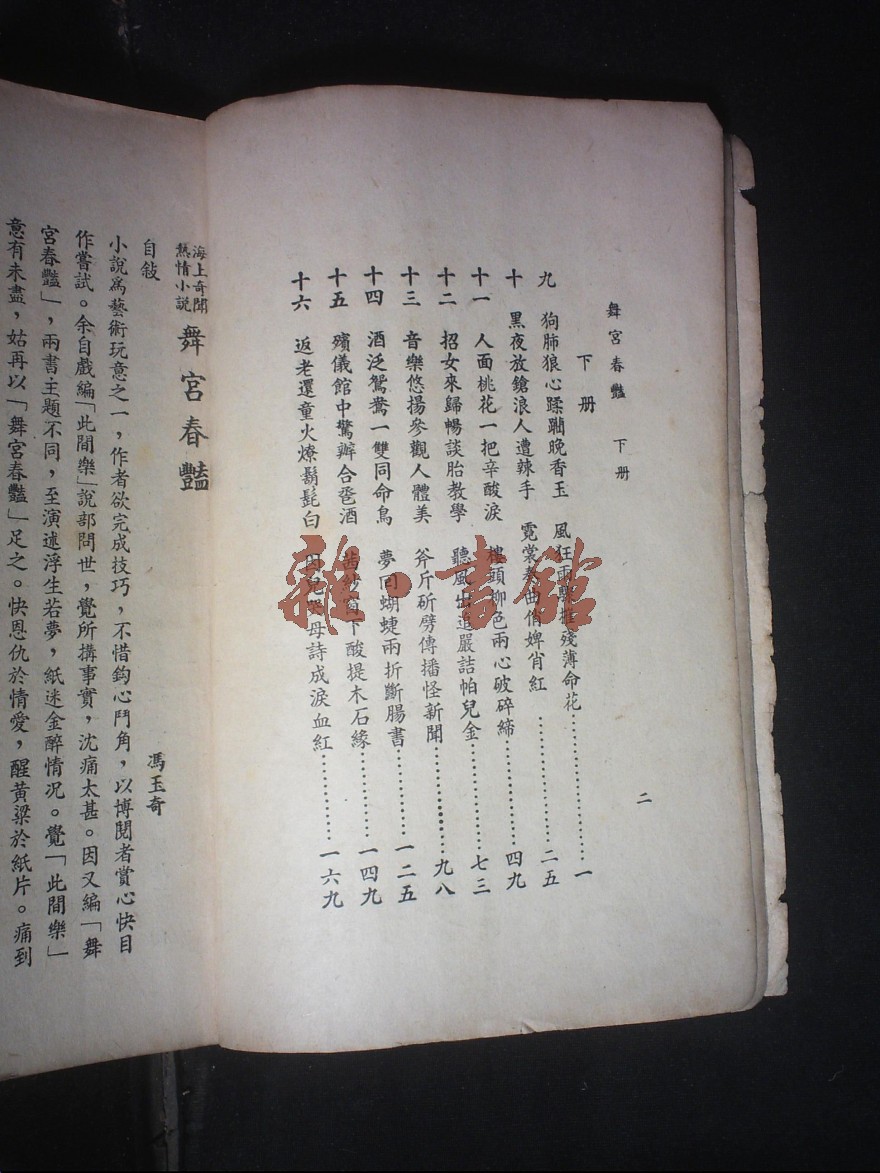 舞宮春豔 下册
二
下册
九 狗肺狼心蹂躪晚香玉 風狂雨驟摧殘薄命花……一
十 黑夜放鎗浪人遭辣手 霓裳奏曲俏婢肖紅……二五
十一 人面桃花一把辛酸淚 樓頭柳色兩心破碎締……四九
十二 招女來歸暢談胎教學 聽風出追嚴詰帕兒金……七三
十三 音樂悠揚參觀人體美 斧斤斫劈傳播怪新聞……九八
十四 酒泛鴛鴦一雙同命鳥 夢回蝴蝶兩折斷腸書……一二五
十五 殯儀館中驚辦合卺酒 茜紗窗下酸提木石緣……一四九
十六 返老還童火燎鬍髭白 因兒哭母詩成淚血紅……一六九
海上奇聞
熱情小說
舞宮春豔
自敍
馮玉奇
小說爲藝術玩意之一，作者欲完成技巧，不惜鈎心鬥角，以博閱者賞心快目
作嘗試。余自戲編「此間樂」說部問世，覺所搆事實，沈痛太甚。因又編「舞
宮春豔」，兩書主題不同，至演述浮生若夢，紙迷金醉情况。覺「此間樂」
意有未盡，姑再以「舞宮春豔」足之。快恩仇於情愛，醒黃粱於紙片。痛到
雜·書館